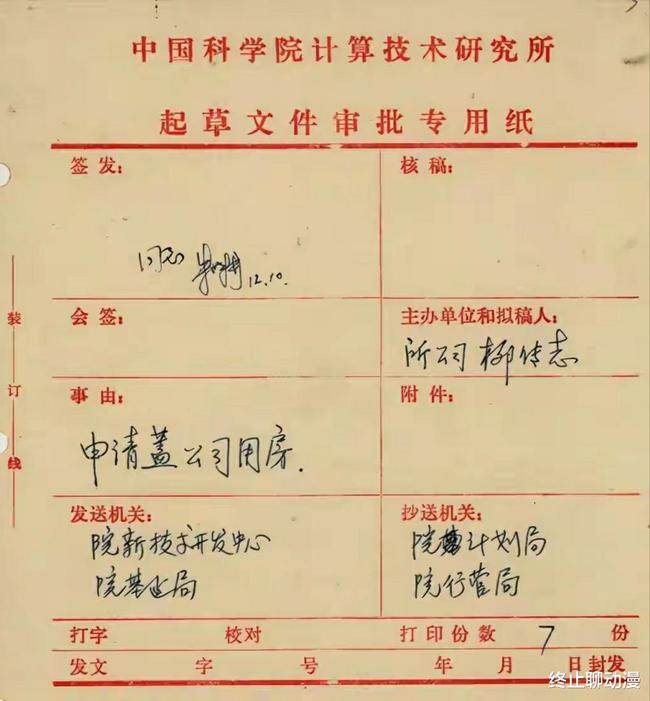 中国科学院计算技术研究所
起草文件审批专用纸
签发：
核稿：
同意
12.10.
会签：
主办单位和拟稿人：
所公司 柳传志
事由：
附件：
申请蓋公司用房.
发送机关：
抄送机关：
院新技术开发中心
院计划局
院基建局
院行管局
打字 校对 打印份数 7 份
发文 字 号 年 月 日封发
装订线
终止聊动漫